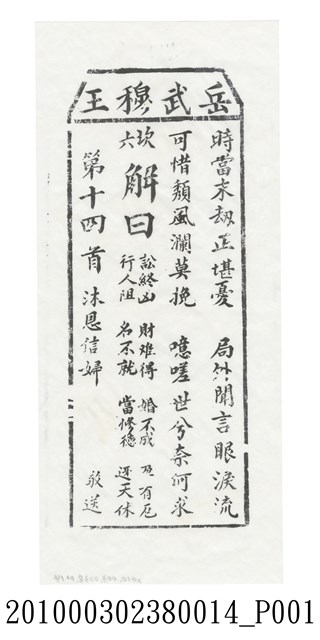 岳武穆王
時當末劫正堪憂　局外聞言眼淚流
可惜頹風瀾莫挽　噫嗟世兮奈何求
坎六
解曰
訟終凶　財难得　婚不成　孕有厄
行人阻　名不就　當修德　迓天休
第十四首　沐恩信婦　敬送
201000302380014_P001